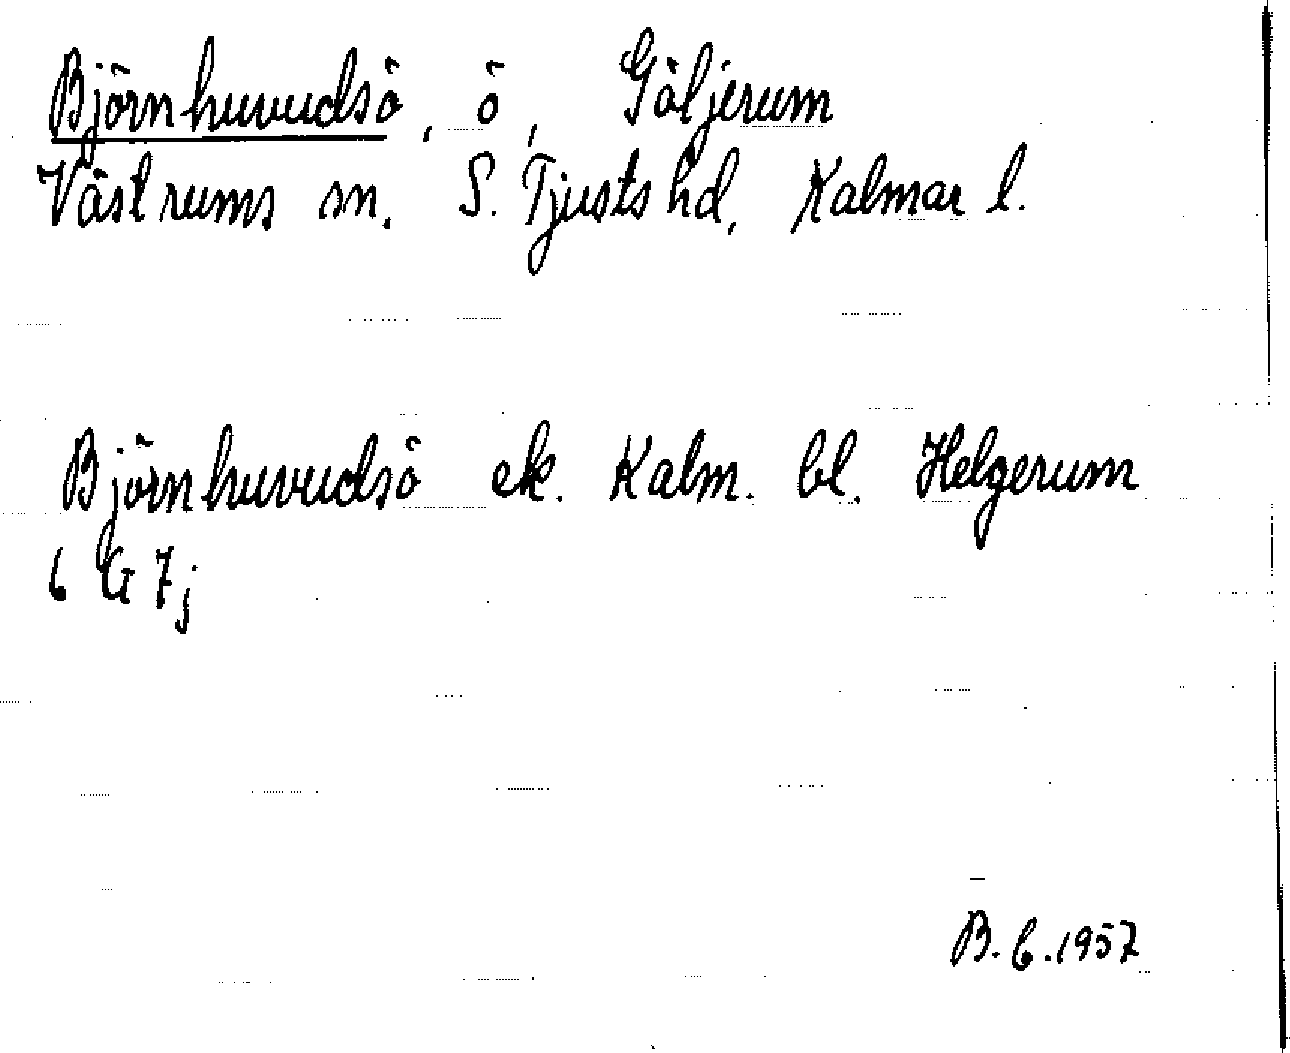 Björnhuvudsö, ö, Göljerum
Västrums sn. S. Tjusts hd, Kalmar l.
Björnhuvudsö ek. Kalm. bl. Helgerum
6 G 7j
B. G. 1957